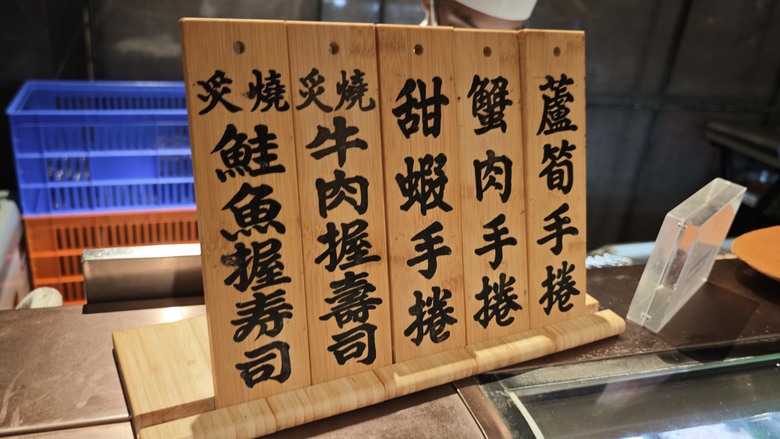 蘆筍手捲
蟹肉手捲
甜蝦手捲
炙燒牛肉握壽司
炙燒鮭魚握寿司